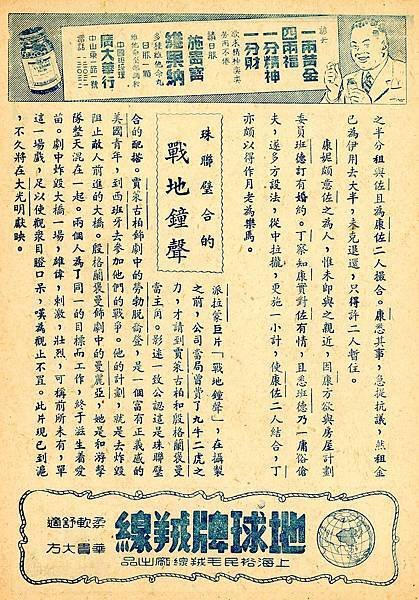 諺云
一兩黃金
四兩福
一分精神
一分財
欲求精神奕奕
勞而不倦
請日服
施貴寶
維果納
多種維他命丸
日服一顆
中國總經理
廣大華行
中山東一路一號
之半分租與佐且為康佐二人撮合。康悉其事，急提抗議，然租金
已為伊用去大半，委克退還，只得許二人暫住。
康妮頗意佐之為人，惟未即與之親近，因康方欲與房屋計劃
委員班德訂有婚約。丁察知康實對佐有情，且悉班德乃一庸俗傖
夫，遂多方設法，從中拉攏，更施一小計，使康佐二人結合，丁
亦頗以得作月老為樂焉。
珠聯璧合的
戰地鐘聲
派拉蒙巨片「戰地鐘聲」，在攝製
之前，公司當局曾費了九牛二虎之
力，才請到賈萊古柏和殷格蘭褒曼
當主角。影迷一致公認這是珠聯璧
合的配搭。賈萊古柏飾劇中的勞勃脫喬登，是一個富有正義感的
美國青年，到西班牙去參加他們的戰爭。他的計劃，就是去炸毀
阻止敵人前進的大橋。殷格蘭褒曼飾劇中的曼麗亞，她是和游擊
隊整天混在一起。兩個人為了同一的目標而工作，終于滋生着愛
苗。劇中炸毀大橋一場，雄偉，刺激，壯烈，可稱前所未有，單
這一場戲，足以使觀衆目瞪口呆，嘆為觀止不置。此片現已到滬
，不久將在大光明獻映。
地球牌羢線
柔軟舒適
華貴大方
上海裕民毛羢線廠出品